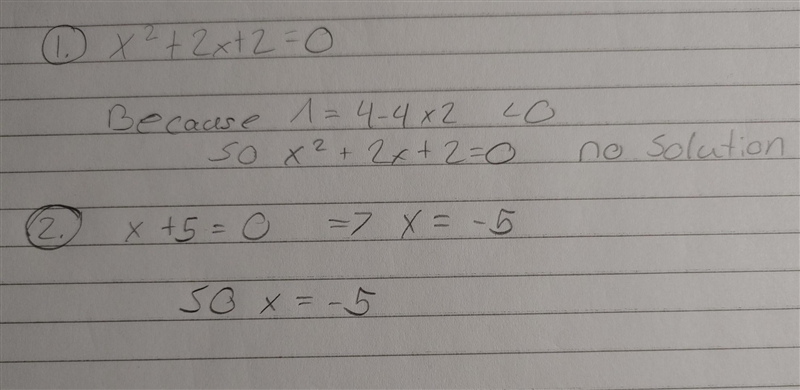 1. x² + 2x + 2 = 0
Because Λ = 4 - 4 x 2 < 0
so x² + 2x + 2 = 0 no solution
2. x + 5 = 0 => x = -5
so x = -5